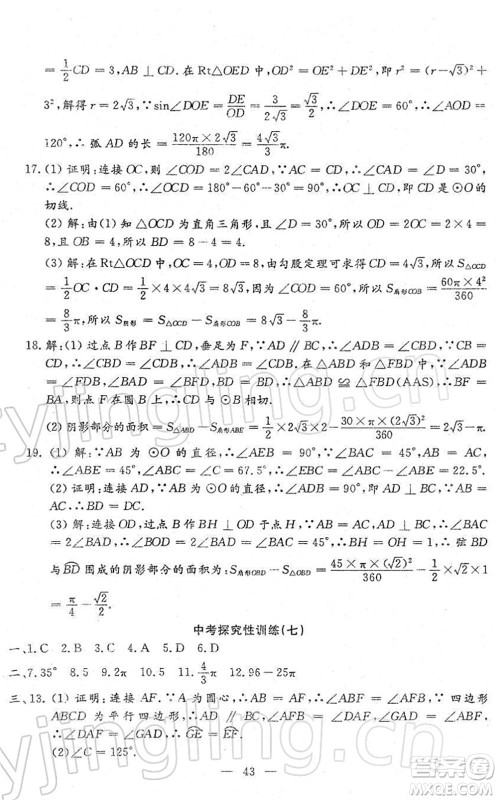 = 1/2 CD = 3, AB ⊥ CD. 在 Rt△OED 中, OD² = OE² + DE², 即 r² = (r-√3)² +
3², 解得 r = 2√3, ∵ sin∠DOE = DE/OD = 3/(2√3) = √3/2, ∴ ∠DOE = 60°, ∴ ∠AOD =
120°, ∴ 弧 AD 的长 = (120π×2√3)/180 = (4√3/3)π.
17. (1) 证明: 连接 OC, 则 ∠COD = 2∠CAD, ∵ AC = CD, ∴ ∠CAD = ∠D = 30°,
∴ ∠COD = 60°, ∴ ∠OCD = 180°-60°-30° = 90°, ∴ OC ⊥ CD, 即 CD 是 ⊙O 的
切线.
(2) 解: 由(1) 知 △OCD 为直角三角形, 且 ∠D = 30°, 所以 OD = 2OC = 2×4 =
8, 且 OB = 4, 所以 BD = 8-4 = 4.
(3) 解: 在 Rt△OCD 中, 由勾股定理可求得 CD = 4√3, 所以 S△OCD
= 1/2 OC·CD = 1/2×4×4√3 = 8√3, 因为 ∠COD = 60°, 所以 S扇形COB = (60π×4²)/360 =
(8/3)π, 所以 S阴影 = S△OCD - S扇形COB = 8√3 - (8/3)π.
18. (1) 解: 过点 B 作 BF ⊥ CD, 垂足为 F, ∵ AD ∥ BC, ∴ ∠ADB = ∠CBD, ∵ CB =
CD, ∴ ∠CBD = ∠CDB, ∴ ∠ADB = ∠CDB. 在 △ABD 和 △FBD 中,
∠ADB = ∠FDB, ∠BAD = ∠BFD, BD = BD, ∴ △ABD ≌ △FBD (AAS), ∴ BF =
BA, 则点 F 在圆 B 上, ∴ CD 与圆 B 相切.
(2) 阴影部分的面积 = S△ABD - S扇形ABE = 1/2×2√3×2 - (30×π×(2√3)²)/360 = 2√3 - π.
19. (1) 解: ∵ AB 为 ⊙O 的直径, ∴ ∠AEB = 90°, 又 ∵ ∠BAC = 45°, ∴
∠ABE = 45°, ∵ AB = AC, ∴ ∠ABC = ∠C = 67.5°, ∴ ∠EBC = 22.5°.
(2) 证明: 连接 AD, ∵ AB 为 ⊙O 的直径, ∴ ∠ADB = 90°, 又 ∵ AB = AC, ∴ BD
= DC.
(3) 解: 连接 OD, 过点 B 作 BH ⊥ OD 于点 H, ∵ AB = AC, ∴ ∠BAC =
2∠BAD, ∵ ∠BOD = 2∠BAD, ∴ ∠BOD = ∠BAC = 45°, ∴ BH = 1, ∴ 弦 BD
与 BD 围成的阴影部分的面积为: S扇形OBD - S△OBD = (45×π×(√2)²)/360 - 1/2×√2×1
= π/4 - √2/2.
中考探究性训练(七)
一、1. C 2. B 3. C 4. A 5. D 6. D
二、7. 35° 8. 5 9. 2 10. π 11. 4/3 π 12. 96-25π
三、13. (1) 证明: 连接 AF. ∵ A 为圆心, ∴ AB = AF, ∴ ∠ABF = ∠AFB, ∵ 四边形
ABCD 为平行四边形, ∴ AD ∥ BC, ∠AFB = ∠DAF, ∠GAD = ∠ABF, ∴
∠DAF = ∠GAD, ∴ GE = EF.
(2) ∠C = 125°.
— 43 —
yjingling.com
答案圈
MXQE.COM